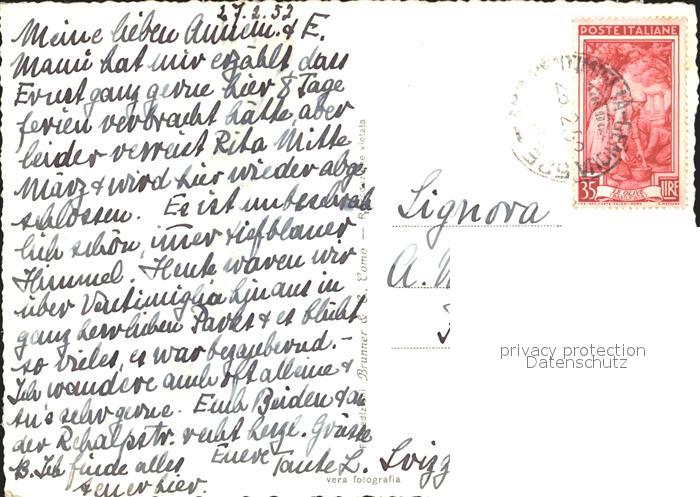 27.2.52
Meine lieben Annem. & E.
Mami hat mir erzählt dass
Ernst ganz gerne hier 8 Tage
ferien verbracht hätte, aber
leider verreist Rita Mitte
März & wird hier wieder abge-
schlossen. Es ist unbeschreib
lich schön, immer tiefblauer
Himmel. Heute waren wir
über Ventimiglia hinaus in
ganz herrlichen Parks & es blüht
so vieles, es war bezaubernd. -
Ich wandere auch oft alleine &
tu's sehr gerne. Euch Beiden & an
der Rehalpstr. recht herzl. Grüsse
Euere Tante L.
B. Ich finde alles
teuer hier.
vera fotografia
Brunner & Como - vietata
POSTE ITALIANE
35 LIRE
LE OLIVE
Signora
A.
Svizz
privacy protection
Datenschutz